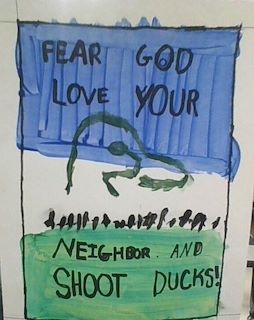 FEAR GOD
LOVE YOUR
NEIGHBOR. AND
SHOOT DUCKS!